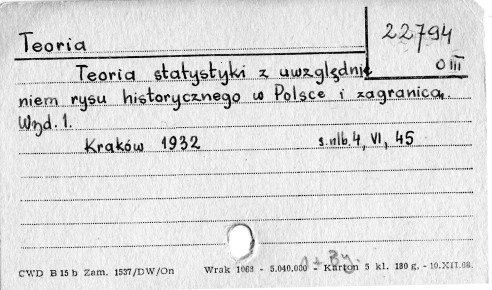 Teoria
22794
O III
Teoria statystyki z uwzględnie
niem rysu historycznego w Polsce i zagranicą.
Wyd. 1.
Kraków 1932 s. nlb. 4, VI, 45
1 + By.
CWD B 15 b Zam. 1537/DW/On Wrak 1063 - 5.040.000 - Karton 5 kl. 180 g. - 10.XII.68.